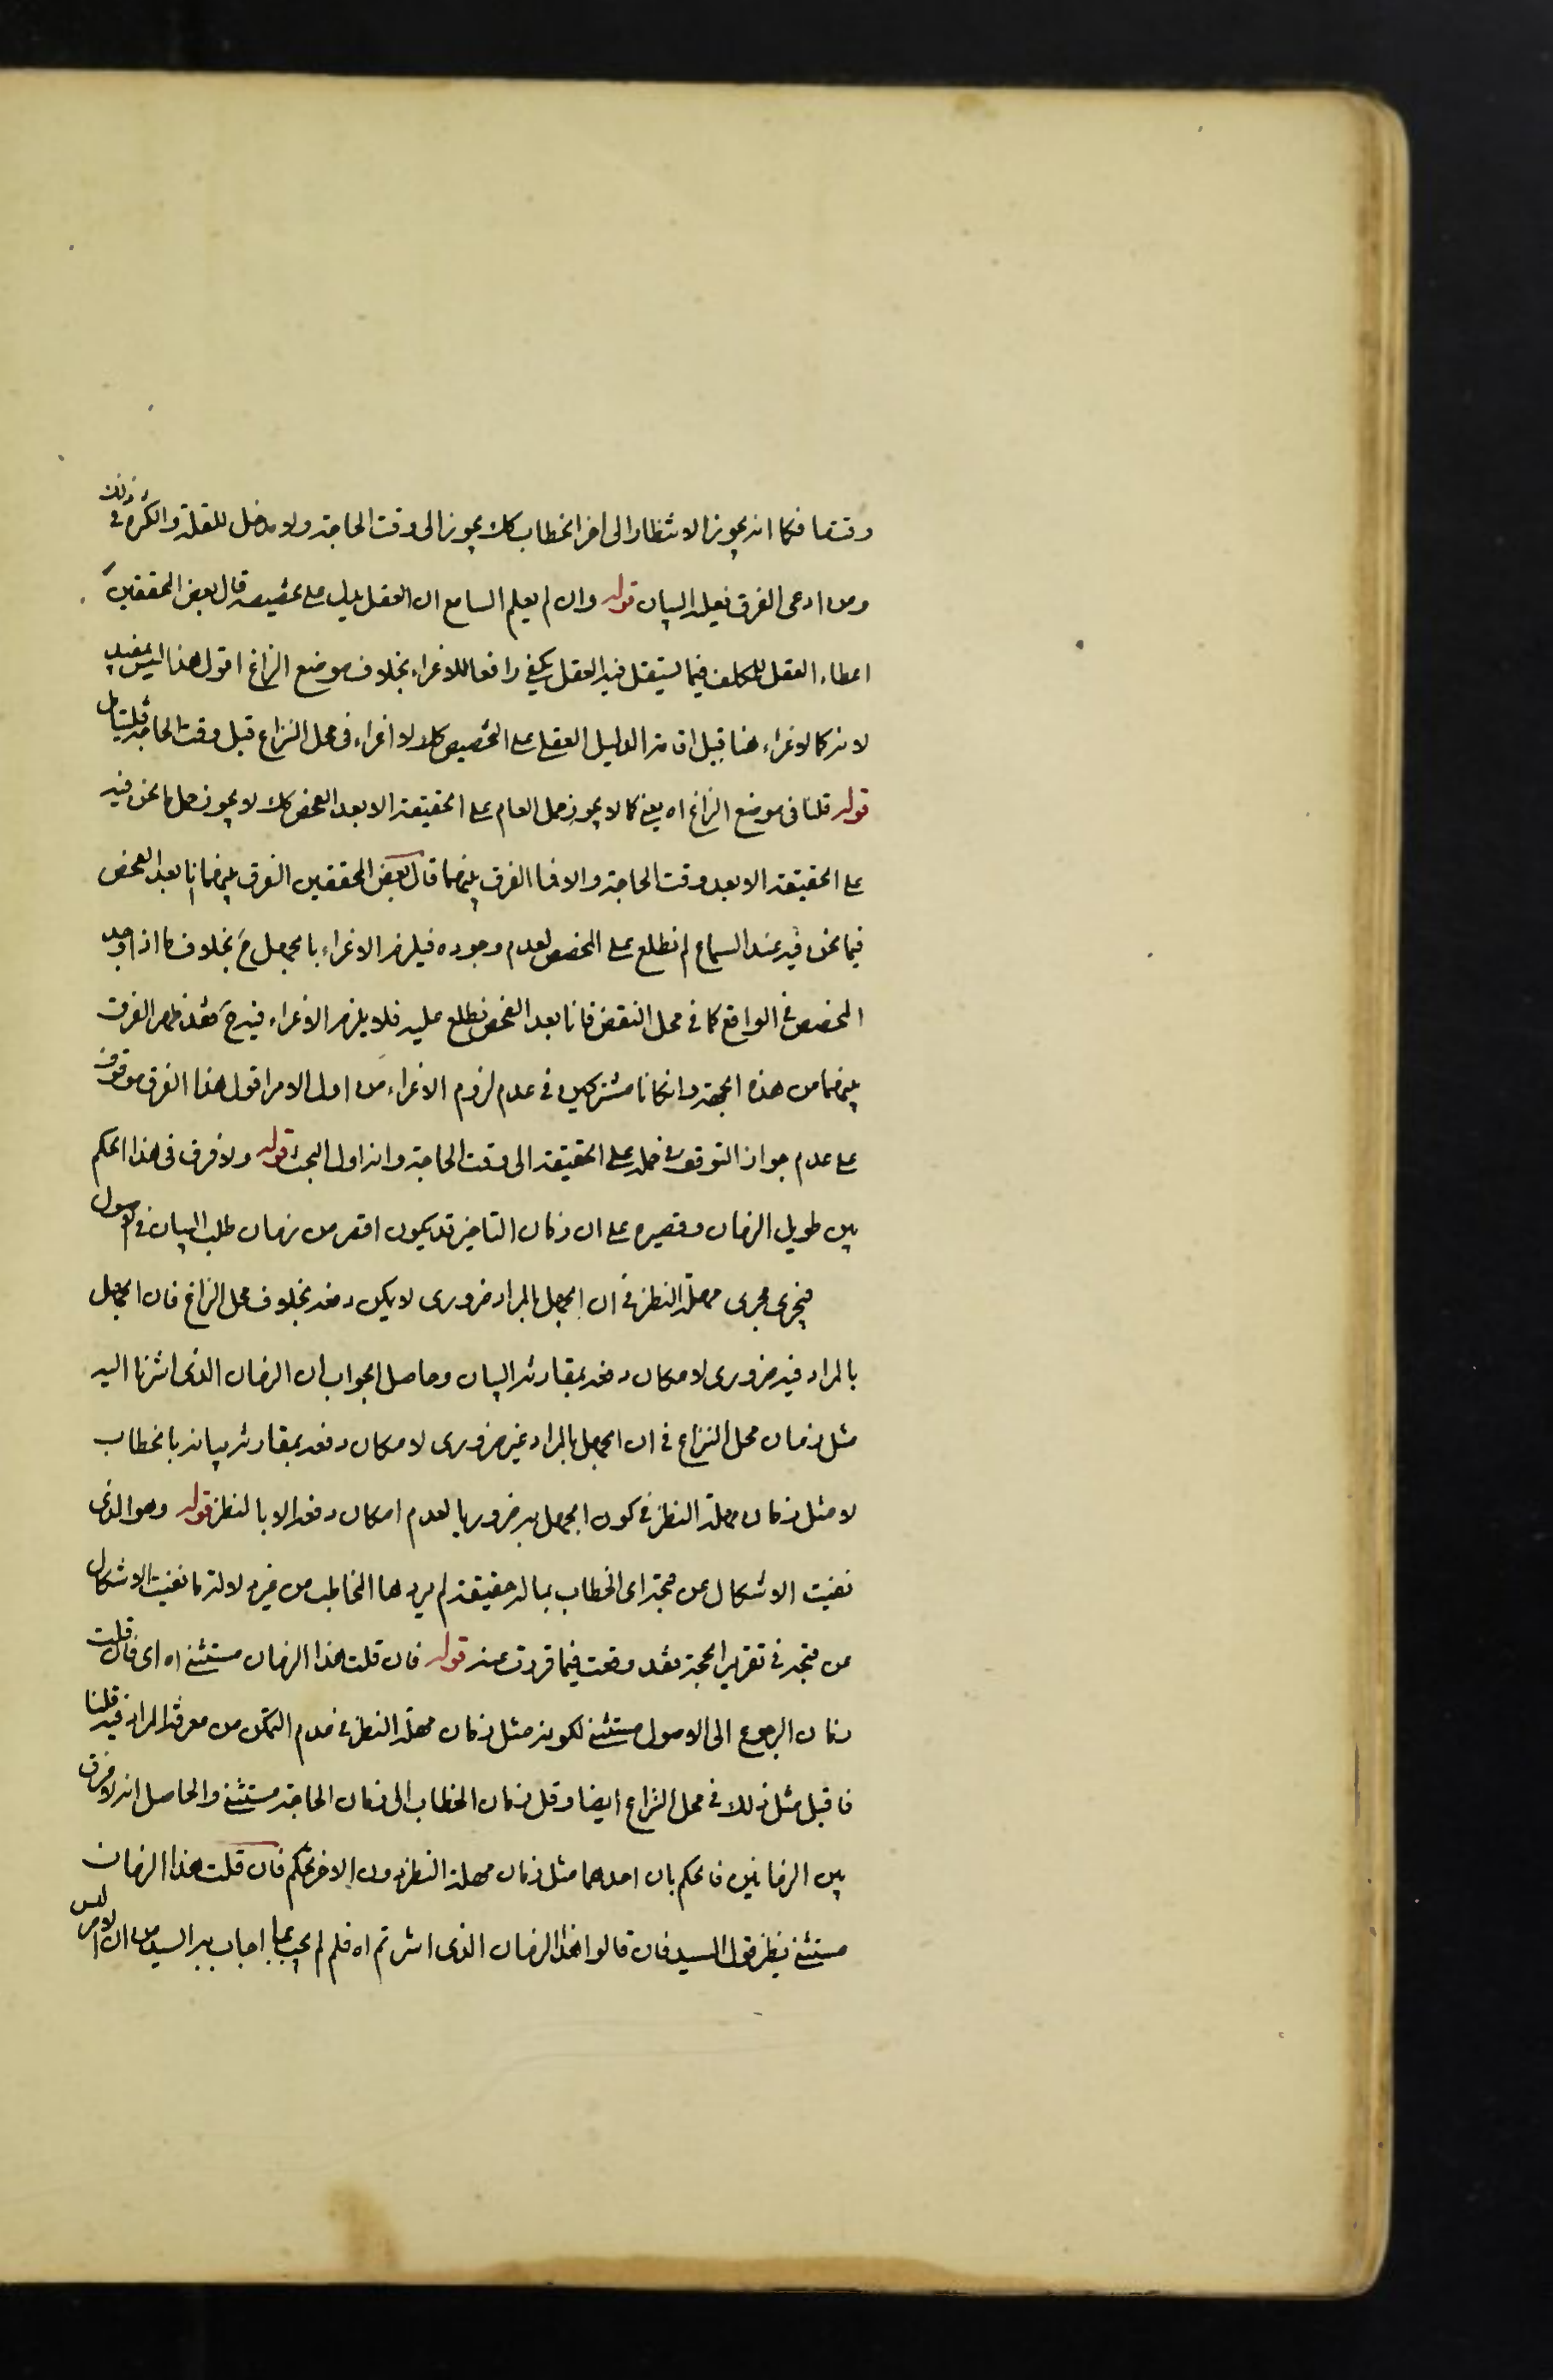 وقتها فكما انه يجوز الانتظار الى اخر الخطاب كك يجوز الى وقت الحاجة ولا مدخل للقلة والكثرة في ذلك
ومن ادعى الفرق فعليه البيان قوله وان لم يعلم السامع ان العقل يدل على تخصيصه قال بعض المحققين
اعطاء العقل للمكلف فيما يستقل فيه العقل يكفي رافعا للاغراء بخلاف موضع النزاع اقول هذا ليس بمفيد
لانه كما لا اغراء هنا قبل اقامة الدليل العقلي على التخصيص كك لا اغراء في محل النزاع قبل وقت الحاجة فليتأمل
قوله قلنا في موضع النزاع اه يعني كما لا يجوز حمل العام على الحقيقة الا بعد الفحص كك لا يجوز حمل ما نحن فيه
على الحقيقة الا بعد وقت الحاجة والا فما الفرق بينهما قال بعض المحققين الفرق بينهما انا بعد الفحص
فيما نحن فيه عند السماع لم نطلع على المخصص لعدم وجوده فيلزم الاغراء بالجهل ح بخلاف ما اذا وجد
المخصص في الواقع كما في محل النقض فانا بعد الفحص نطلع عليه فلا يلزم الاغراء فيه ح فقد ظهر الفرق
بينهما من هذه الجهة وان كانا مشتركين في عدم لزوم الاغراء من اول الامر اقول هذا الفرق موقوف
على عدم جواز التوقف في حمله على الحقيقة الى وقت الحاجة وانه اول البحث قوله ولا فرق في هذا الحكم
بين طويل الزمان وقصيره على ان زمان التاخير قد يكون اقصر من زمان طلب البيان في الاصول
فيجري مجرى مهلة النظر في ان الجهل بالمراد ضروري لا يمكن دفعه بخلاف محل النزاع فان الجهل
بالمراد فيه ضروري لامكان دفعه بمقارنة البيان وحاصل الجواب ان الزمان الذي اشرنا اليه
مثل زمان محل النزاع في ان الجهل بالمراد غير ضروري لامكان دفعه بمقارنة بيانه بالخطاب
لا مثل زمان مهلة النظر في كون الجهل به ضروريا لعدم امكان دفعه الا بالنظر قوله وهو الذي
نفيت الاشكال عن قبحه اى الخطاب بما له حقيقة لم يردها المخاطب من غير دلالة ما نفيت الاشكال
عن قبحه في تقرير الحجة فقد وقعت فيما فررت عنه قوله فان قلت هذا الزمان مستثنى اه اى فان قلت
زمان الرجوع الى الاصول مستثنى لكونه مثل زمان مهلة النظر في عدم التمكن من معرفة المراد فيه قلنا
فاقبل مثل ذلك في محل النزاع ايضا وقل زمان الخطاب الى زمان الحاجة مستثنى والحاصل انه لا فرق
بين الزمانين فالحكم بان احدهما مثل زمان مهلة النظر دون الاخر تحكم فان قلت هذا الزمان
مستثنى نظير قول السيد فان قالوا هذا الزمان الذي اشرتم اه فلم لم يجب بما اجاب به السيد من ان الامر ليس